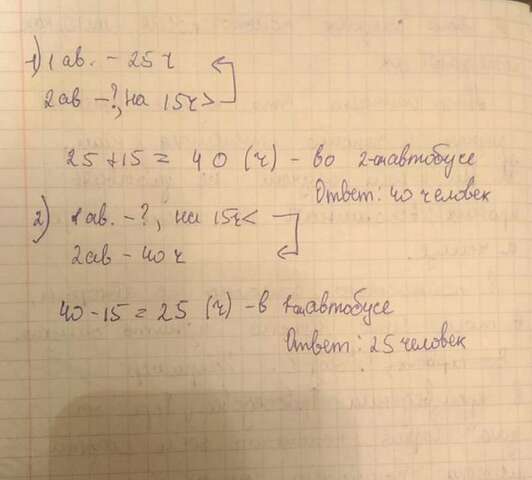 1) 1 ав. - 25 ч
2 ав - ?, на 15 ч >
25 + 15 = 40 (ч) - во 2-ом автобусе
Ответ: 40 человек
2) 1 ав. - ?, на 15 ч <
2 ав - 40 ч
40 - 15 = 25 (ч) - в 1-ом автобусе
Ответ: 25 человек